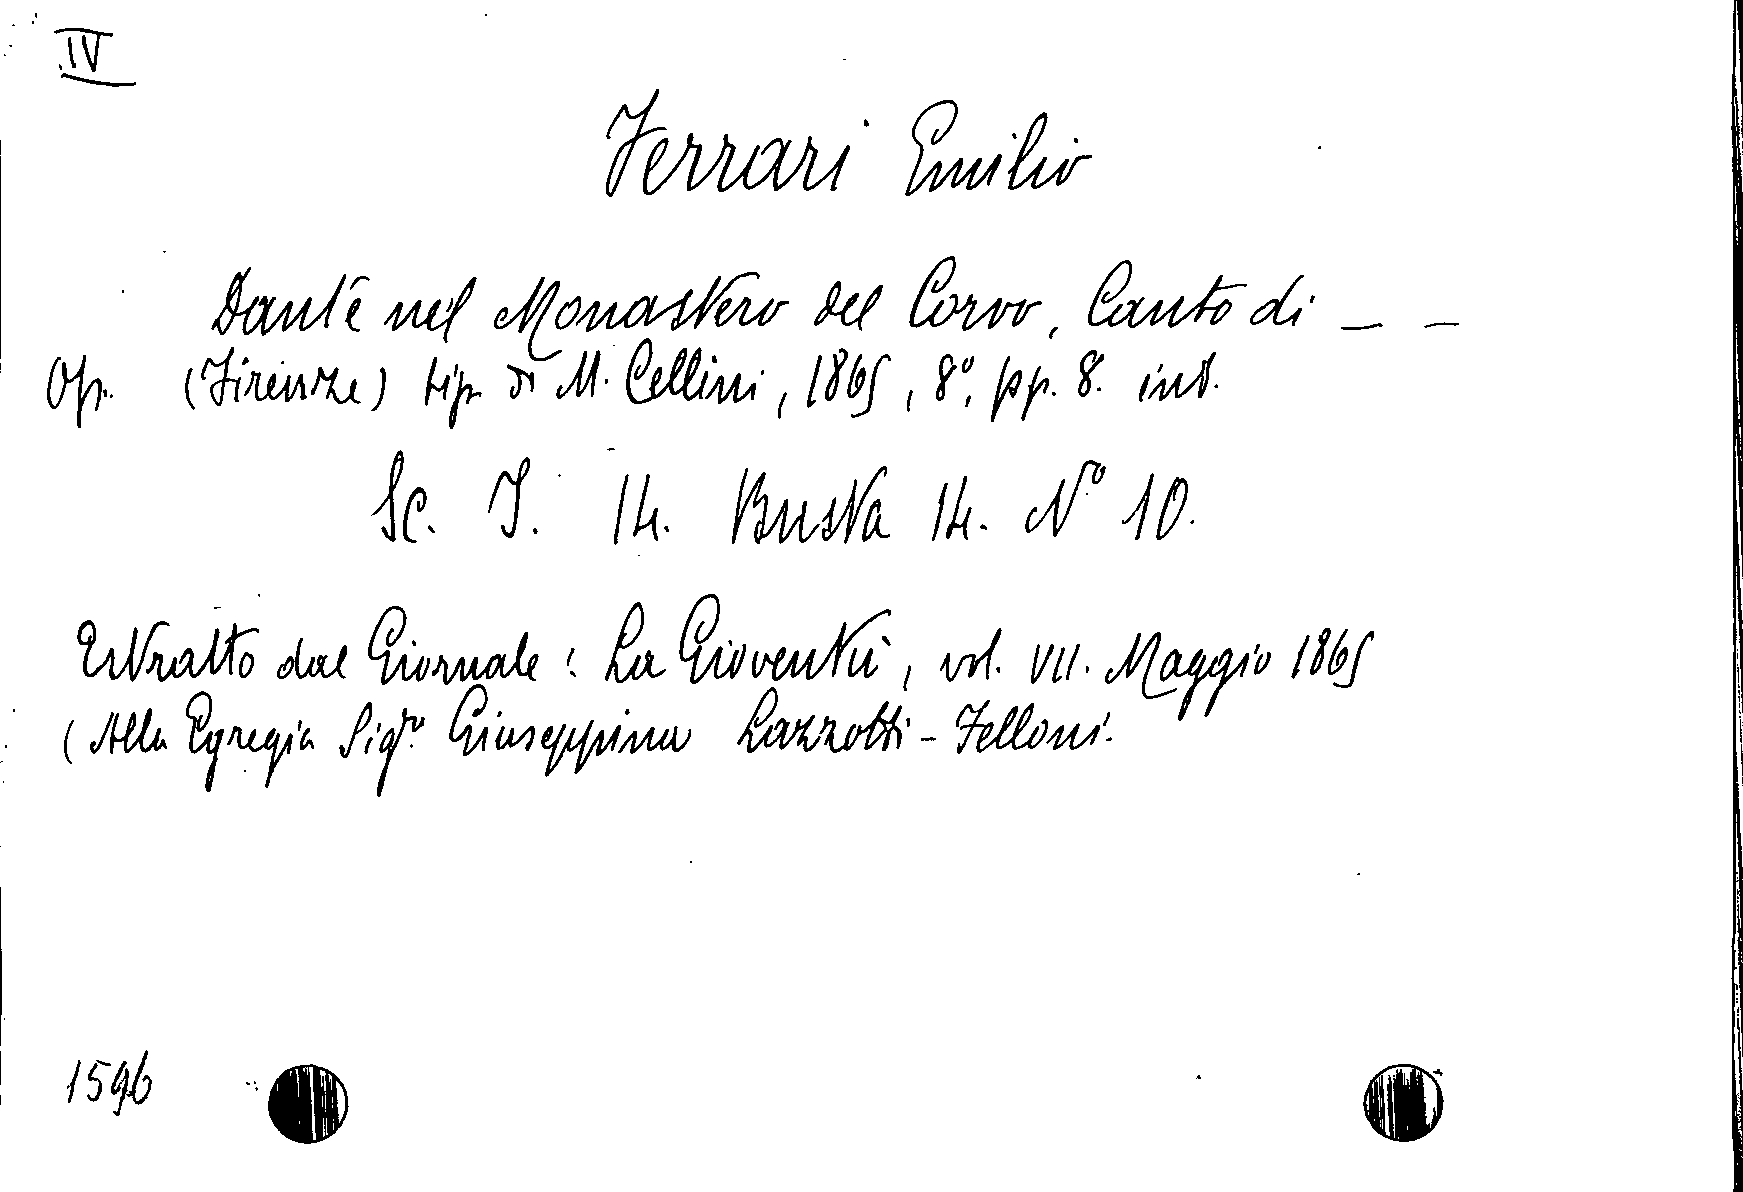 IV
Ferrari Emilio
Dante nel Monastero del Corvo, Canto di _ _
Op. (Firenze) tip. di M. Cellini, 1865, 8°, pp. 8. int.
Sc. I. 14. Busta 14. N° 10.
Estratto dal Giornale: La Gioventù, vol. VII. Maggio 1865
(Alla Egregia Sigra. Giuseppina Lazzotti-Felloni.
1596